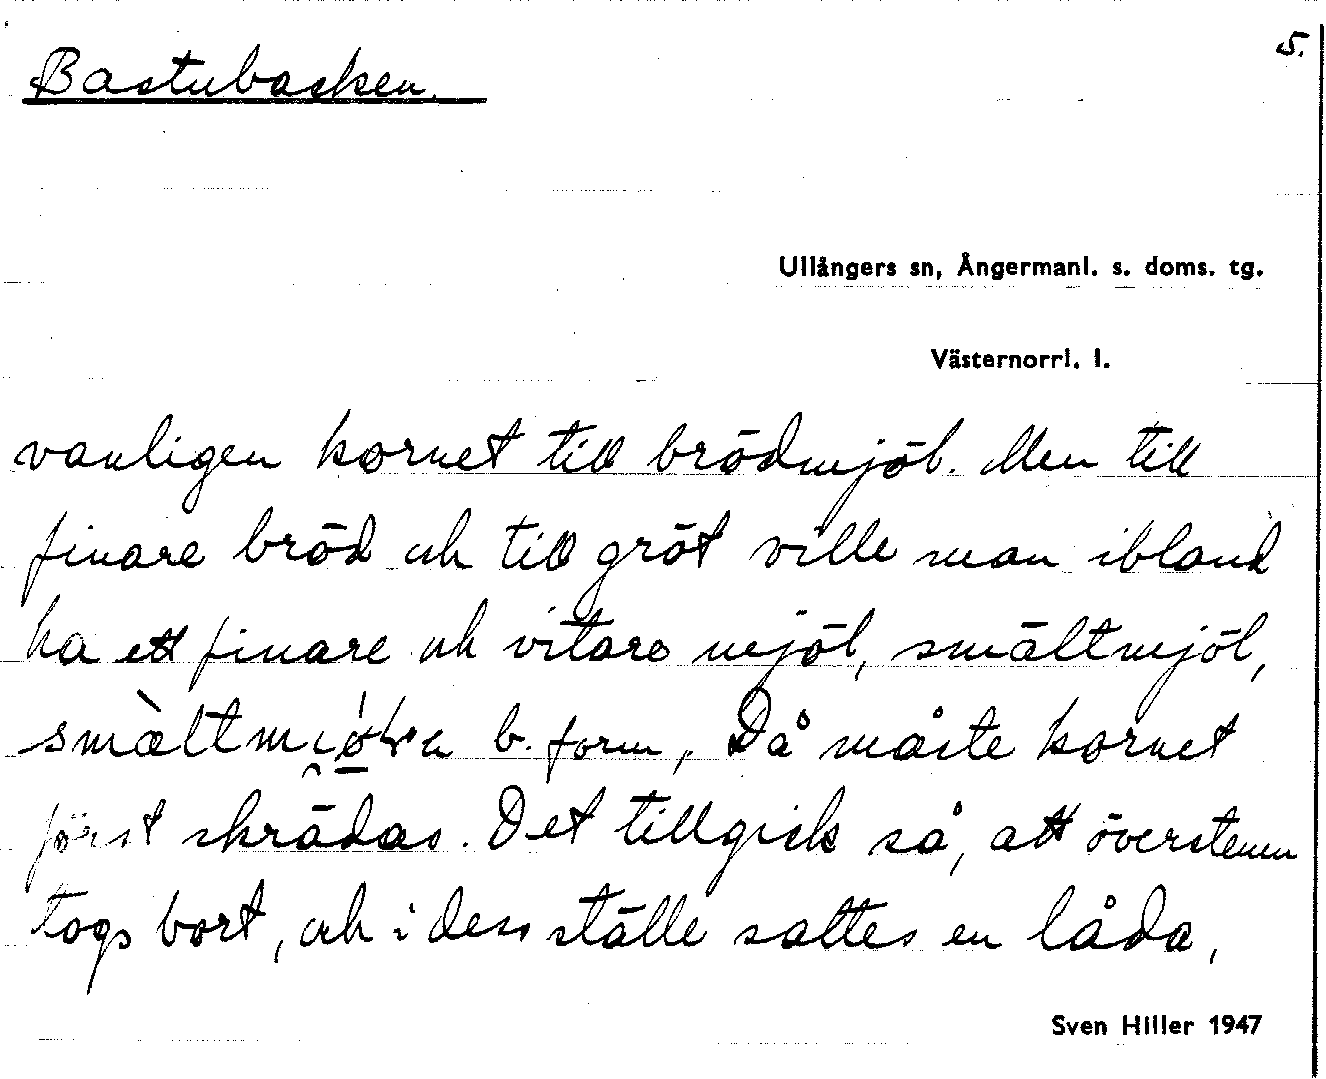 5.
Bastubacken.
Ullångers sn, Ångermanl. s. doms. tg.
Västernorrl. l.
vanligen kornet till brödmjöl. Men till
finare bröd och till gröt ville man ibland
ha ett finare och vitare mjöl, smältmjöl,
b. form, Då måste kornet
först skrädas. Det tillgick så, att överstenen
togs bort, och i dess ställe sattes en låda,
Sven Hiller 1947